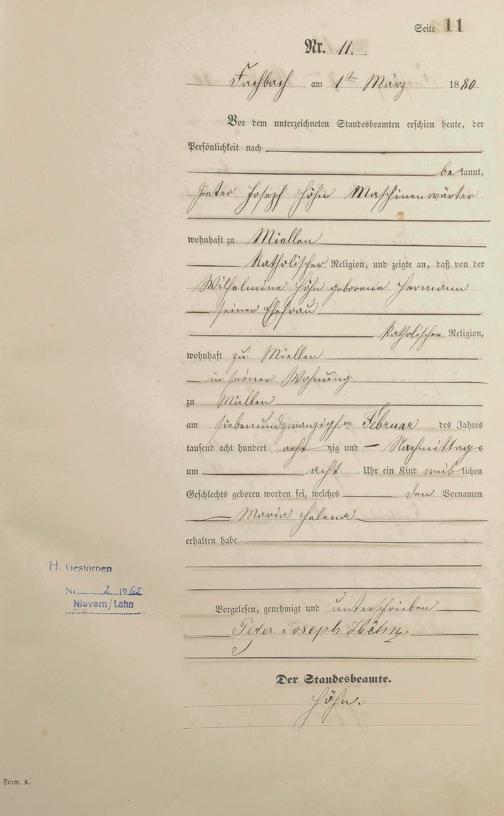 Seite 11
Nr. 11.
Fachbach am 1ten März 1880.
Vor dem unterzeichneten Standesbeamten erschien heute, der
Persönlichkeit nach
bekannt,
Peter Josepf Höhn Maschinenwärter
wohnhaft zu Miellen
katholischer Religion, und zeigte an, daß von der
Wilhelmine Höhn geborene Hermann
seiner Ehefrau
katholischen Religion,
wohnhaft zu Miellen
in seiner Wohnung
zu Miellen
am siebenundzwanzigsten Februar des Jahres
tausend acht hundert achtzig und — Nachmittags
um acht Uhr ein Kind weiblichen
Geschlechts geboren worden sei, welches den Vornamen
Maria Helena
erhalten habe
H. Gestorben
Nr. 2 1965
Nievern/Lahn
Vorgelesen, genehmigt und unterschrieben
Peter Joseph Höhn.
Der Standesbeamte.
Höhn.
Form. A.